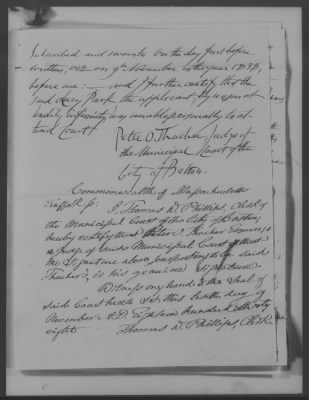 Subscribed and sworn to on the day first before
written, viz on 9th November in the year 1838,
before me: — and I further certify that the
said Mary Park the applicant, by reason of
bodily infirmity is unable personally to at-
tend Court.
Peter O. Thacher, Judge of
the Municipal Court of the
City of Boston.
Commonwealth of Massachusetts
Suffolk ss: I, Thomas W. Phillips, Clerk of
the Municipal Court of the City of Boston,
hereby certify that Peter O. Thacher Esquire is
Judge of said Municipal Court & that
the Signature above, purporting to be said
Thacher's, is his genuine signature.
Witness my hand & the Seal of
said Court hereto set this day of
November A.D. Eighteen hundred thirty
eight.
Thomas W. Phillips, Clerk.